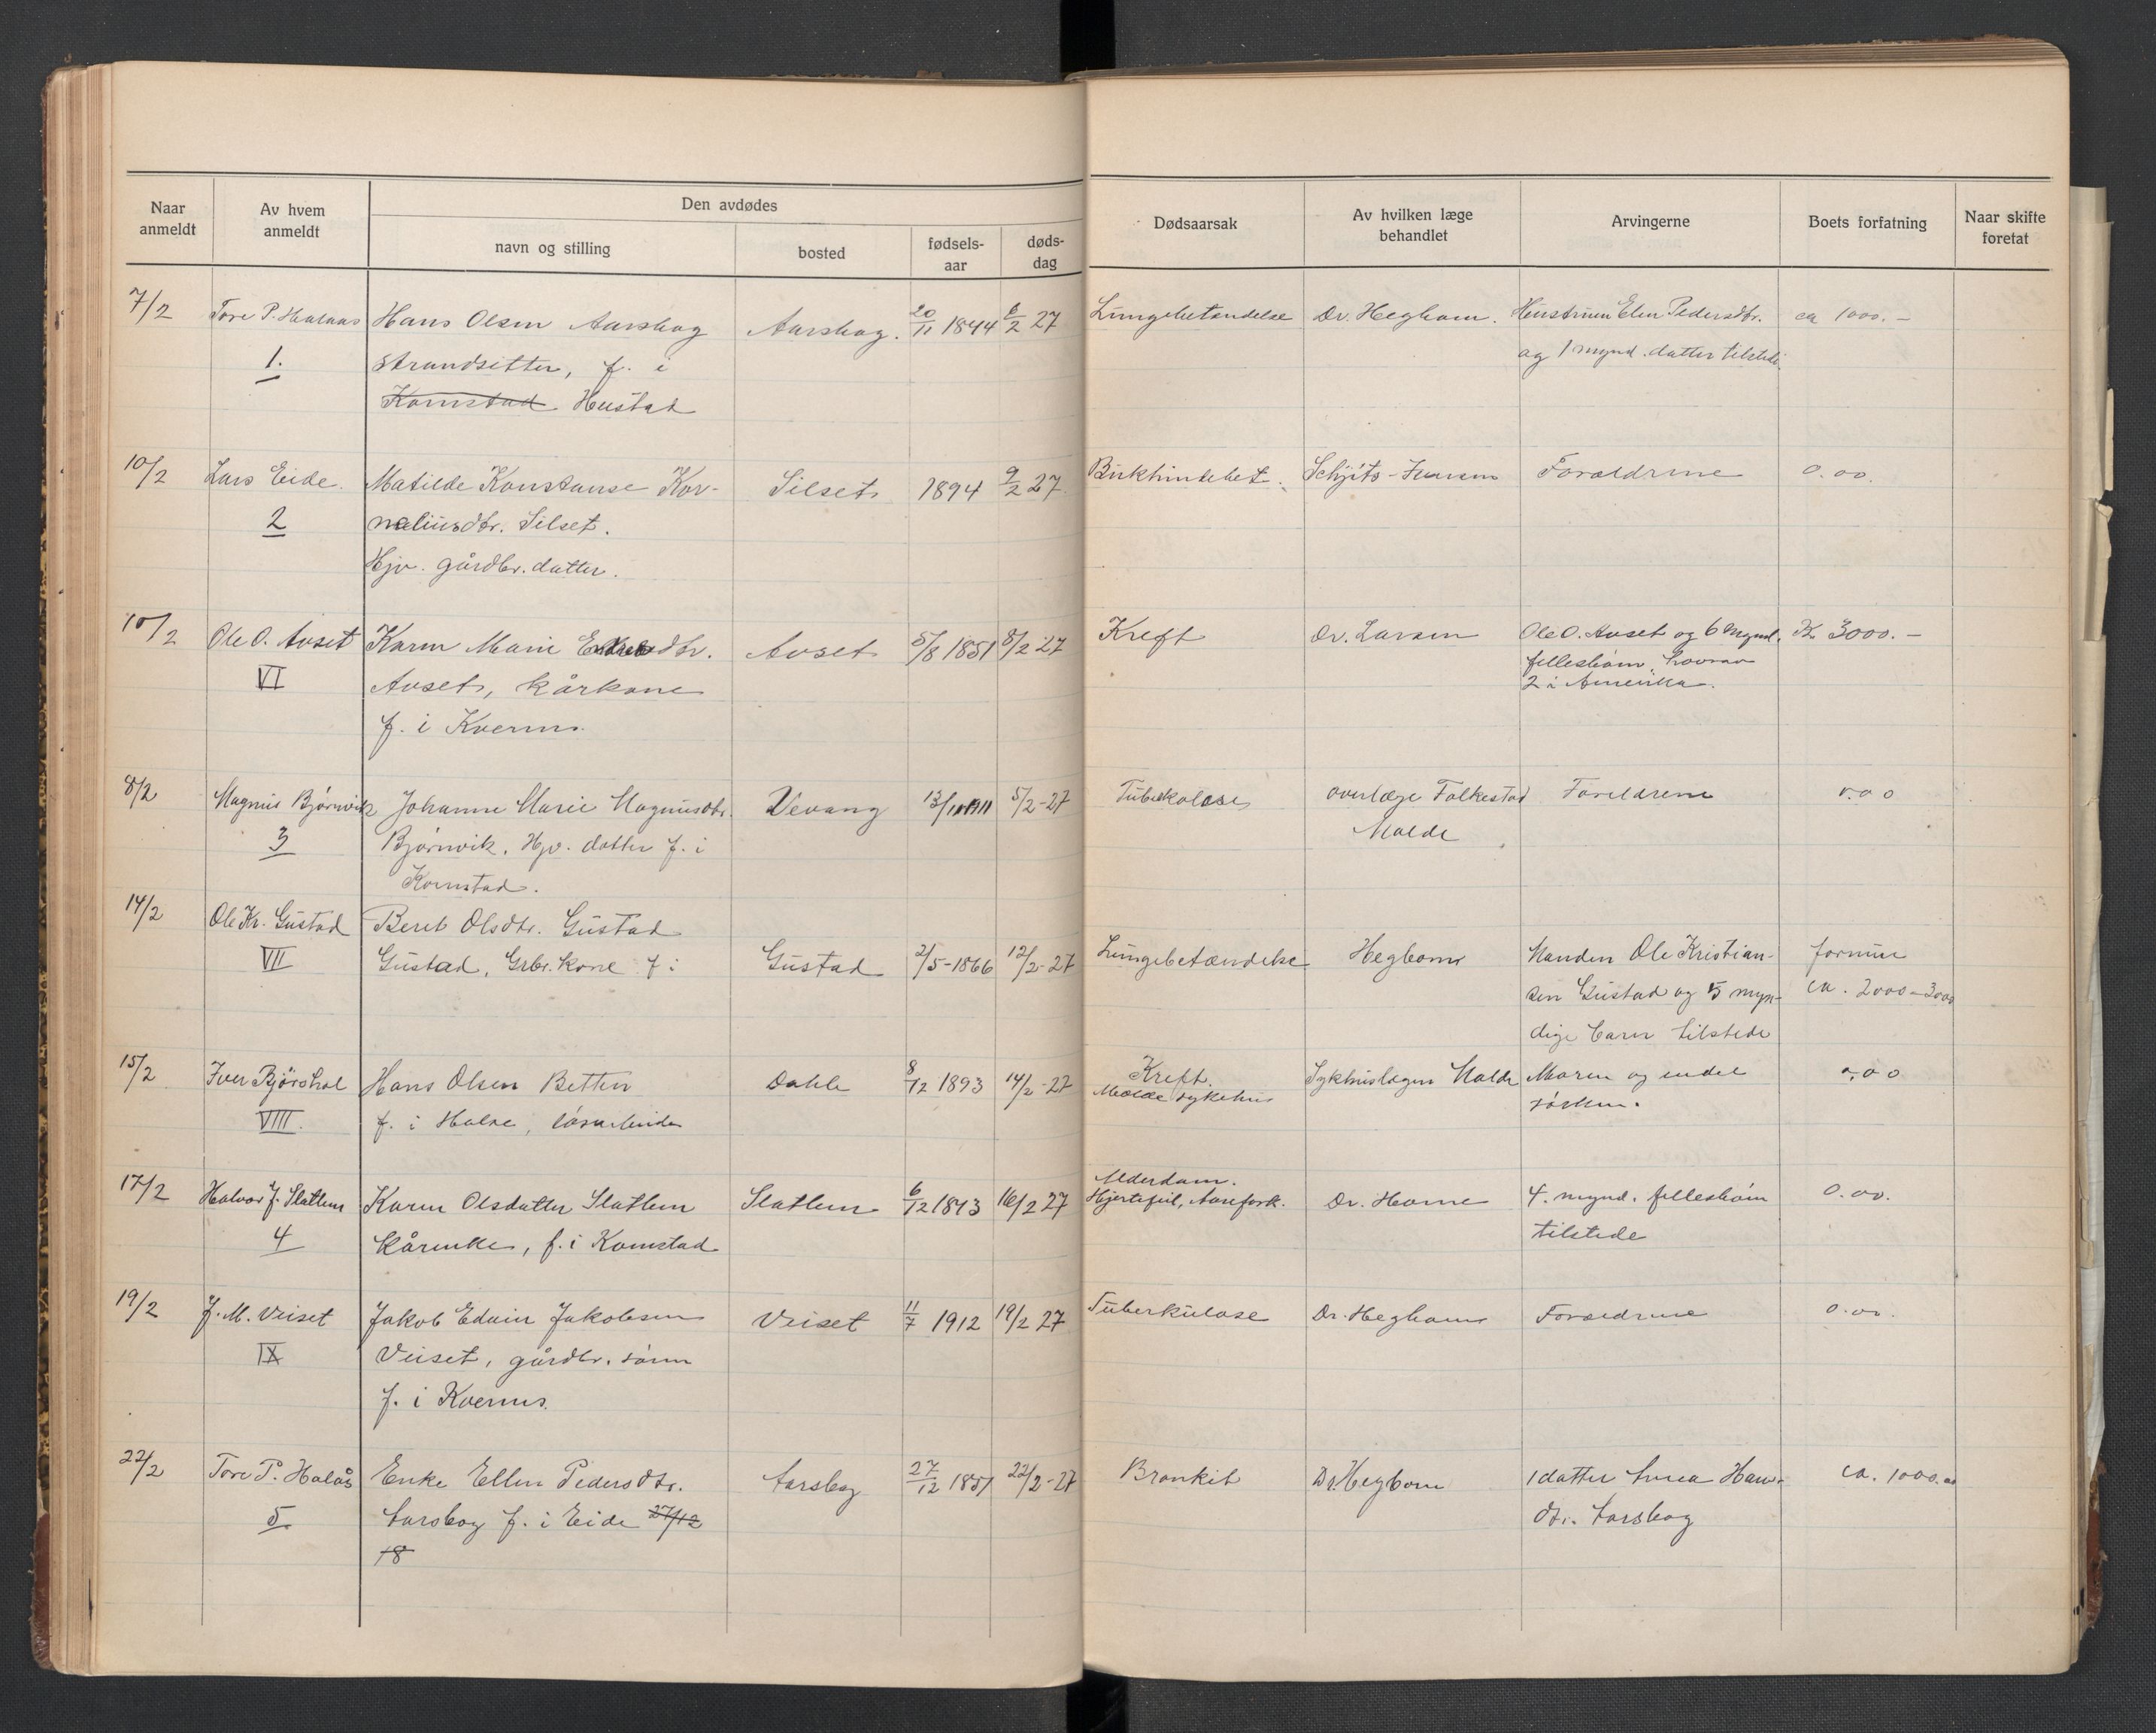 Naar anmeldt
Av hvem anmeldt
Den avdødes
navn og stilling
bosted
fødsels-aar
døds-dag
Dødsaarsak
Av hvilken læge behandlet
Arvingerne
Boets forfatning
Naar skifte foretat
7/2 Tore P. Halaas Hans Olsen Aarsbog Aarsbog. 20/11 1844 6/2 27 Lungebetændelse Dr. Hegbom. Hustruen Elen Pedersdtr. ca 1000.-
1. strandsitter, f. i og 1 mynd. datter tilstede.
Kornstad Hustad
10/2 Lars Eide. Matilde Konstanse Kor- Silset 1894 9/2 27. Bukhindebet. Schjøts-Iversen Foreldrene 0.00.
2 neliusdtr. Silset.
Hjv. gårdbr. datter.
10/2 Ole O. Auset Karen Marie Endresdtr. Auset 5/8 1851 8/2 27 Kreft Dr. Larsen Ole O. Auset og 6 mynd. Kr. 3000.-
VI Auset, kårkone fellesbørn, hvorav
2 i Amerika.
f. i Kvernes
8/2 Magnus Bjørnvik Johanne Marie Magnusdtr. Vevang 13/11 1911 5/2-27 Tuberkolose overlæge Falkestad Foreldrene 0.00
3 Bjørnvik. Hjv. datter f. i Molde
Kornstad.
14/2 Ole Kr. Gustad Beret Olsdtr. Gustad
VII Gustad, Grbr. kone f i Gustad 2/5-1866 12/2-27 Lungebetændelse Hegbom Manden Ole Kristian- formue
sen Gustad og 5 myn- ca. 2000-3000
dige barn tilstede
15/2 Iver Bjørshol Hans Olsen Betten Dahle 8/12 1893 14/2-27 Kreft. Sykhuslægen Molde Moren og endel 0,00
VIII. f. i Halse, løsarbeider Molde sykehus søsken.
17/2 Halvor J. Slatlem Karen Olsdatter Slatlem Slatlem 6/12 1843 16/2 27 Alderdom. Dr. Horne 4. mynd. fellesbørn 0.00.
Hjertefeil, Aarefork.
4 kårenke, f. i Kornstad tilstede
19/2 J. M. Veiset Jakob Edvin Jakobsen Veiset 11/7 1912 19/2 27 Tuberkulose Dr. Hegbom Foreldrene 0.00.
IX Veiset, gårdbr. sønn
f. i Kvernes.
22/2 Tore P. Halås Enke Ellen Pedersdtr. Aarsbog 27/12 1851 22/2-27 Bronkit Dr. Hegbom 1 datter Anna Hans- ca. 1000.00
5. Aarsbog f. i Eide 27/12 dtr. Aarsbog
18